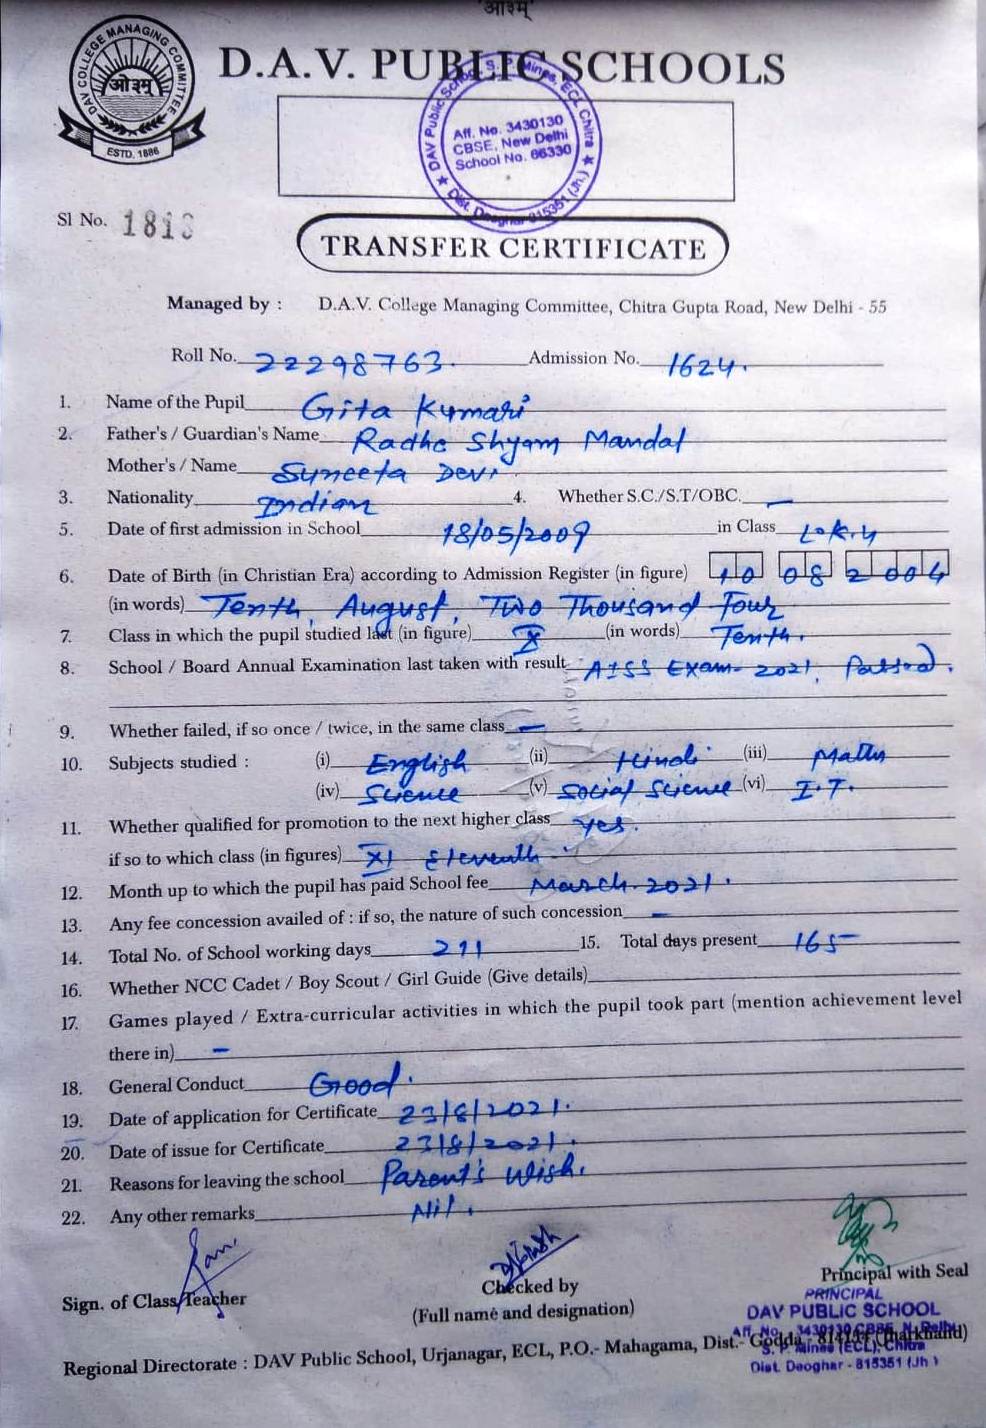 ओ३म्
DAV COLLEGE MANAGING COMMITTEE
ओ३म्
ESTD. 1886
D.A.V. PUBLIC SCHOOLS
DAV Public School, S. P. Mines, ECL Chitra ★ Dist. Deoghar 815351 (Jh.) ★
Aff. No. 3430130
CBSE, New Delhi
School No. 66330
Sl No. 181
TRANSFER CERTIFICATE
Managed by : D.A.V. College Managing Committee, Chitra Gupta Road, New Delhi - 55
Roll No. 22298763. Admission No. 1624.
1. Name of the Pupil Gita Kumari
2. Father's / Guardian's Name Radhe Shyam Mandal
Mother's / Name Suneeta Devi
3. Nationality Indian 4. Whether S.C./S.T/OBC. —
5. Date of first admission in School 18/05/2009 in Class L.K.G
6. Date of Birth (in Christian Era) according to Admission Register (in figure) 10 08 2004
(in words) Tenth, August, Two Thousand Four
7. Class in which the pupil studied last (in figure) X (in words) Tenth.
8. School / Board Annual Examination last taken with result AISS Exam-2021, Passed.
9. Whether failed, if so once / twice, in the same class —
10. Subjects studied : (i) English (ii) Hindi (iii) Maths
(iv) Science (v) Social Science (vi) I.T.
11. Whether qualified for promotion to the next higher class yes.
if so to which class (in figures) XI Eleventh
12. Month up to which the pupil has paid School fee March-2021.
13. Any fee concession availed of : if so, the nature of such concession —
14. Total No. of School working days 211 15. Total days present 165
16. Whether NCC Cadet / Boy Scout / Girl Guide (Give details)
17. Games played / Extra-curricular activities in which the pupil took part (mention achievement level
there in) —
18. General Conduct Good.
19. Date of application for Certificate 23/8/2021.
20. Date of issue for Certificate 23/8/2021.
21. Reasons for leaving the school Parent's Wish.
22. Any other remarks Nil.
Sign. of Class Teacher
Checked by
(Full name and designation)
Principal with Seal
PRINCIPAL
DAV PUBLIC SCHOOL
Aff. No. 3430130 CBSE, N. Delhi
S. P. Mines (ECL), Chitra
Dist. Deoghar - 815351 (Jh )
Regional Directorate : DAV Public School, Urjanagar, ECL, P.O.- Mahagama, Dist.- Godda - 814154 (Jharkhand)